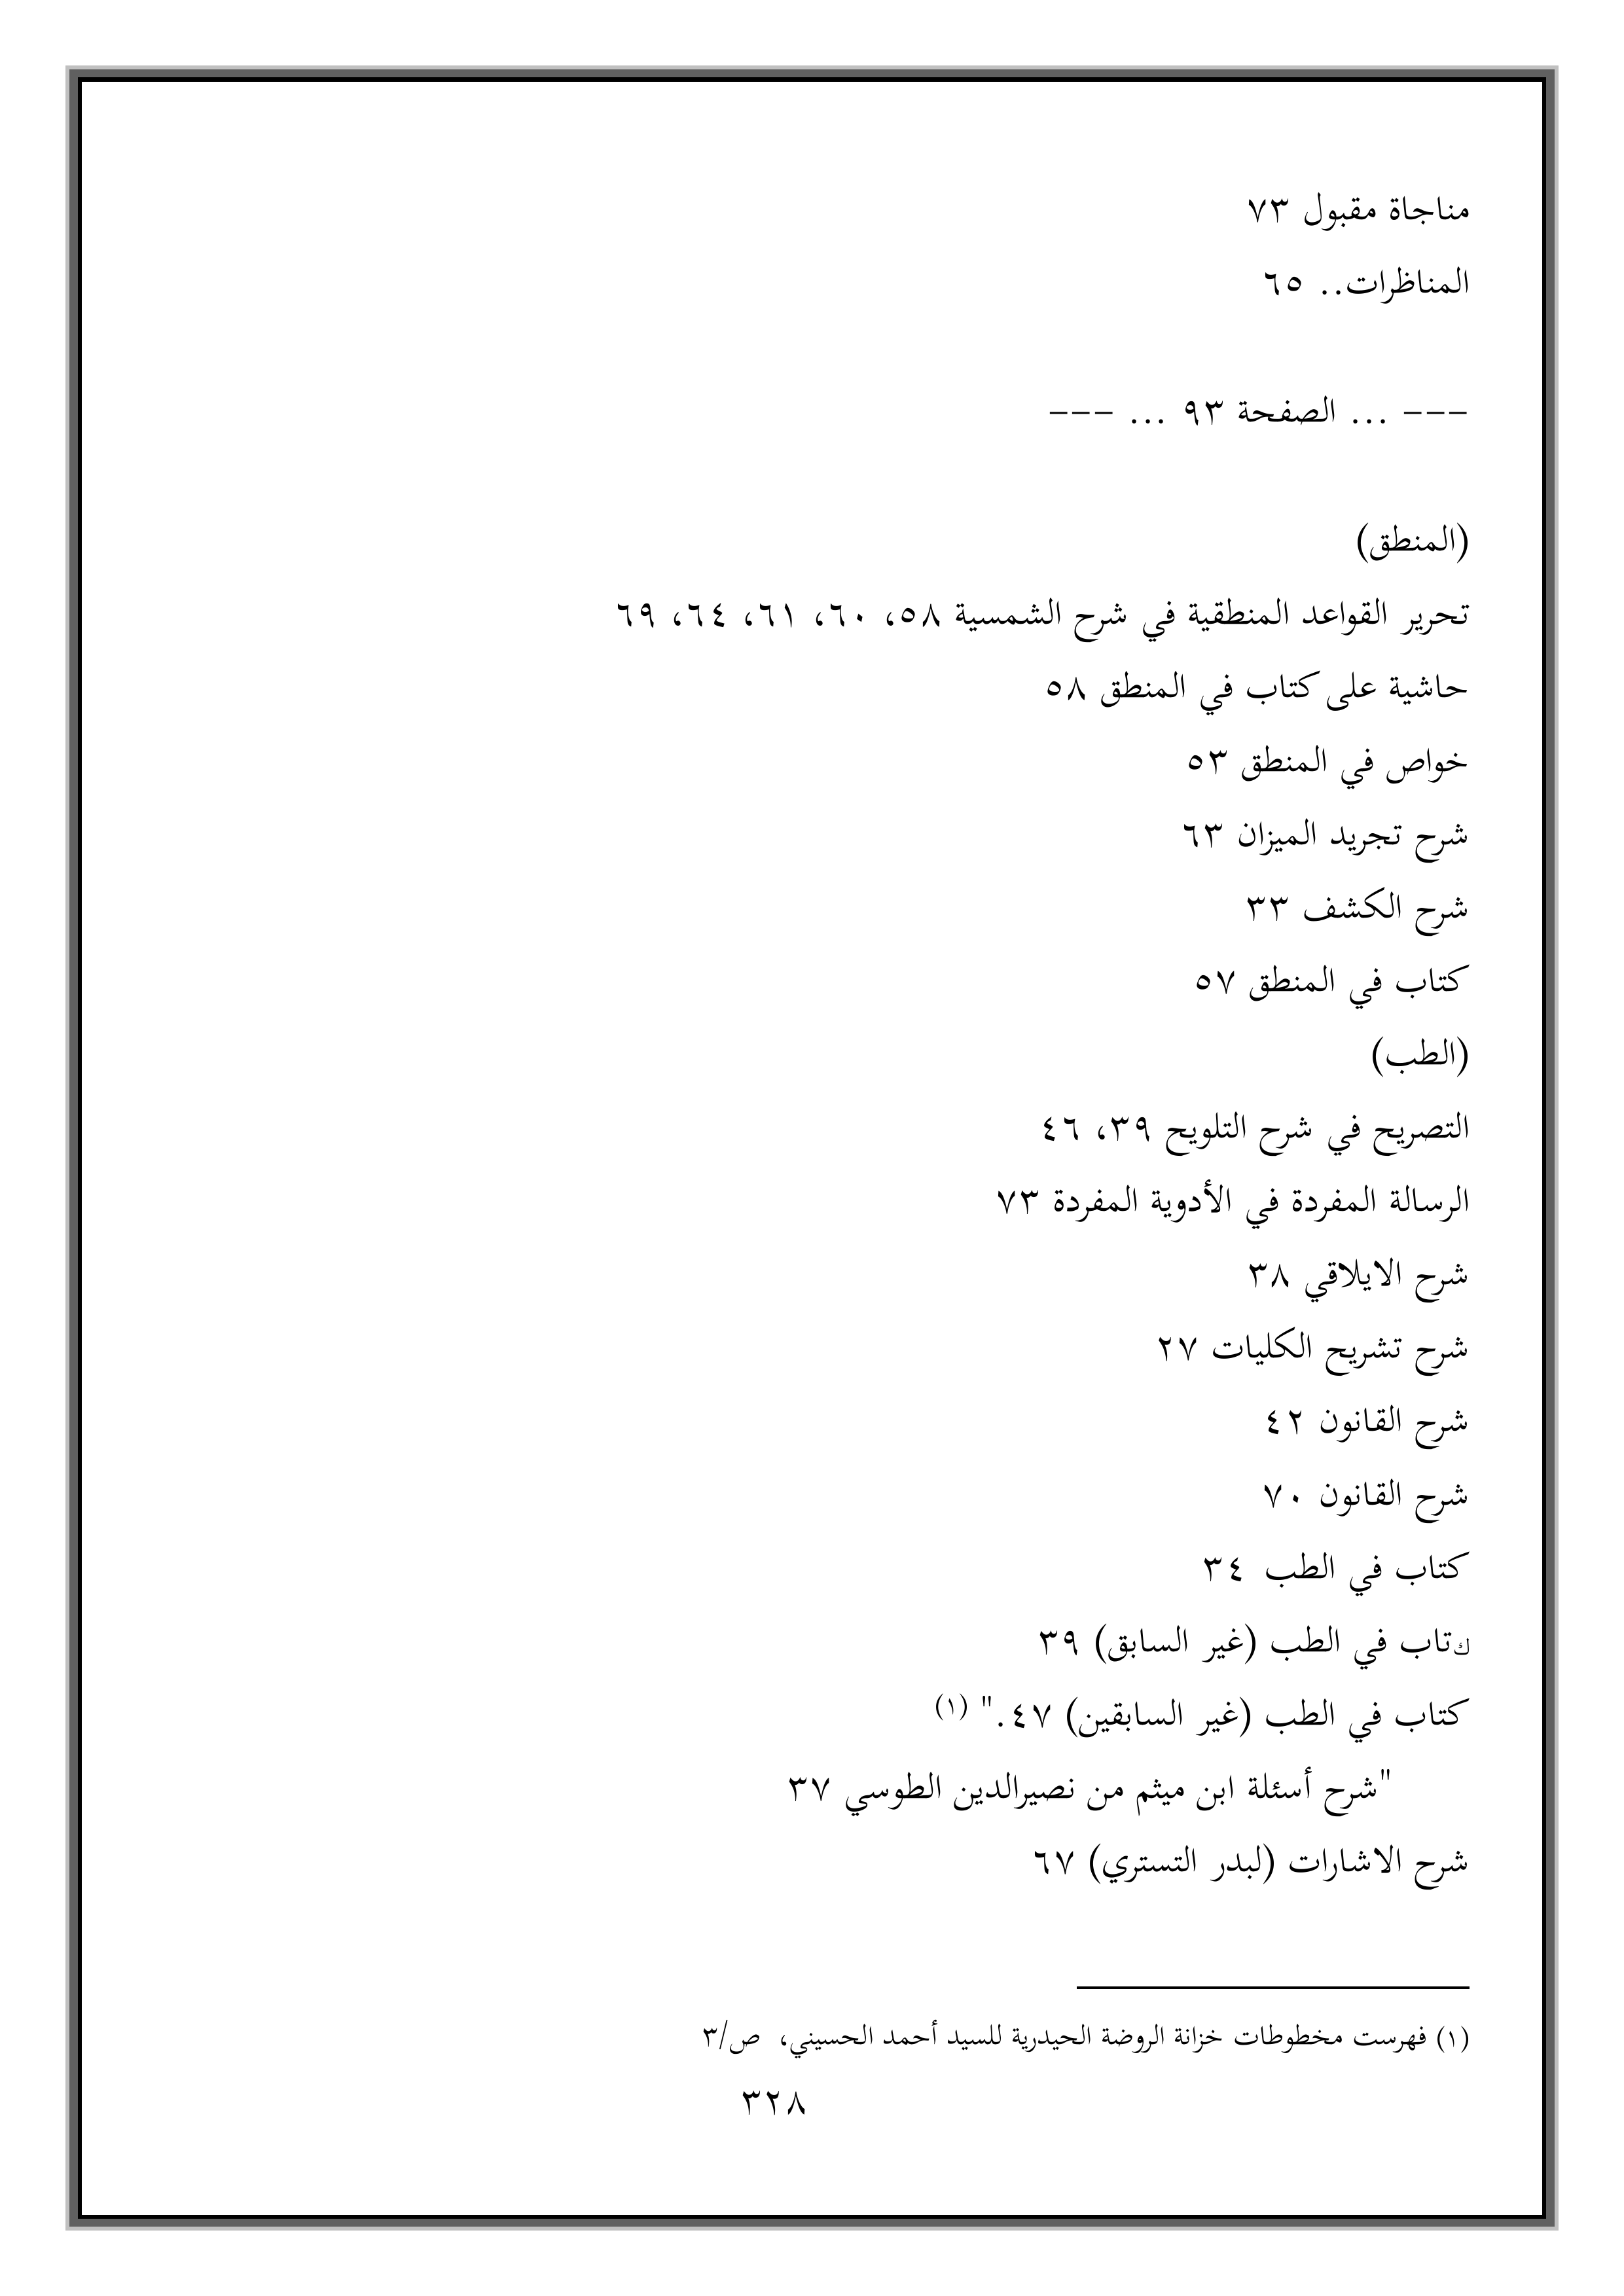 مناجاة مقبول ٧٣
المناظرات.. ٦٥
--- ... الصفحة ٩٣ ... ---
(المنطق)
تحرير القواعد المنطقية في شرح الشمسية ٥٨، ٦٠، ٦١، ٦٤، ٦٩
حاشية على كتاب في المنطق ٥٨
خواص في المنطق ٥٣
شرح تجريد الميزان ٦٣
شرح الكشف ٣٣
كتاب في المنطق ٥٧
(الطب)
التصريح في شرح التلويح ٣٩، ٤٦
الرسالة المفردة في الأدوية المفردة ٧٣
شرح الايلاقي ٣٨
شرح تشريح الكليات ٢٧
شرح القانون ٤٢
شرح القانون ٧٠
كتاب في الطب ٣٤
كتاب في الطب (غير السابق) ٣٩
كتاب في الطب (غير السابقين) ٤٧." (١)
"شرح أسئلة ابن ميثم من نصيرالدين الطوسي ٣٧
شرح الاشارات (لبدر التستري) ٦٧
(١) فهرست مخطوطات خزانة الروضة الحيدرية للسيد أحمد الحسيني، ص/٣
٣٢٨